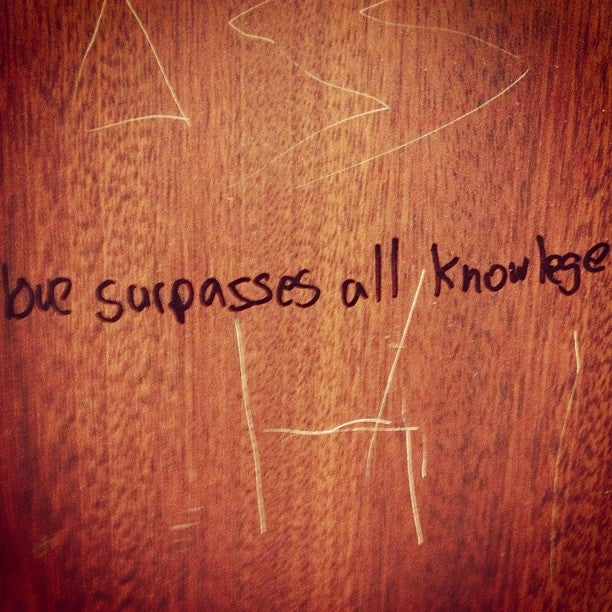 ASS
love surpasses all knowlege
H